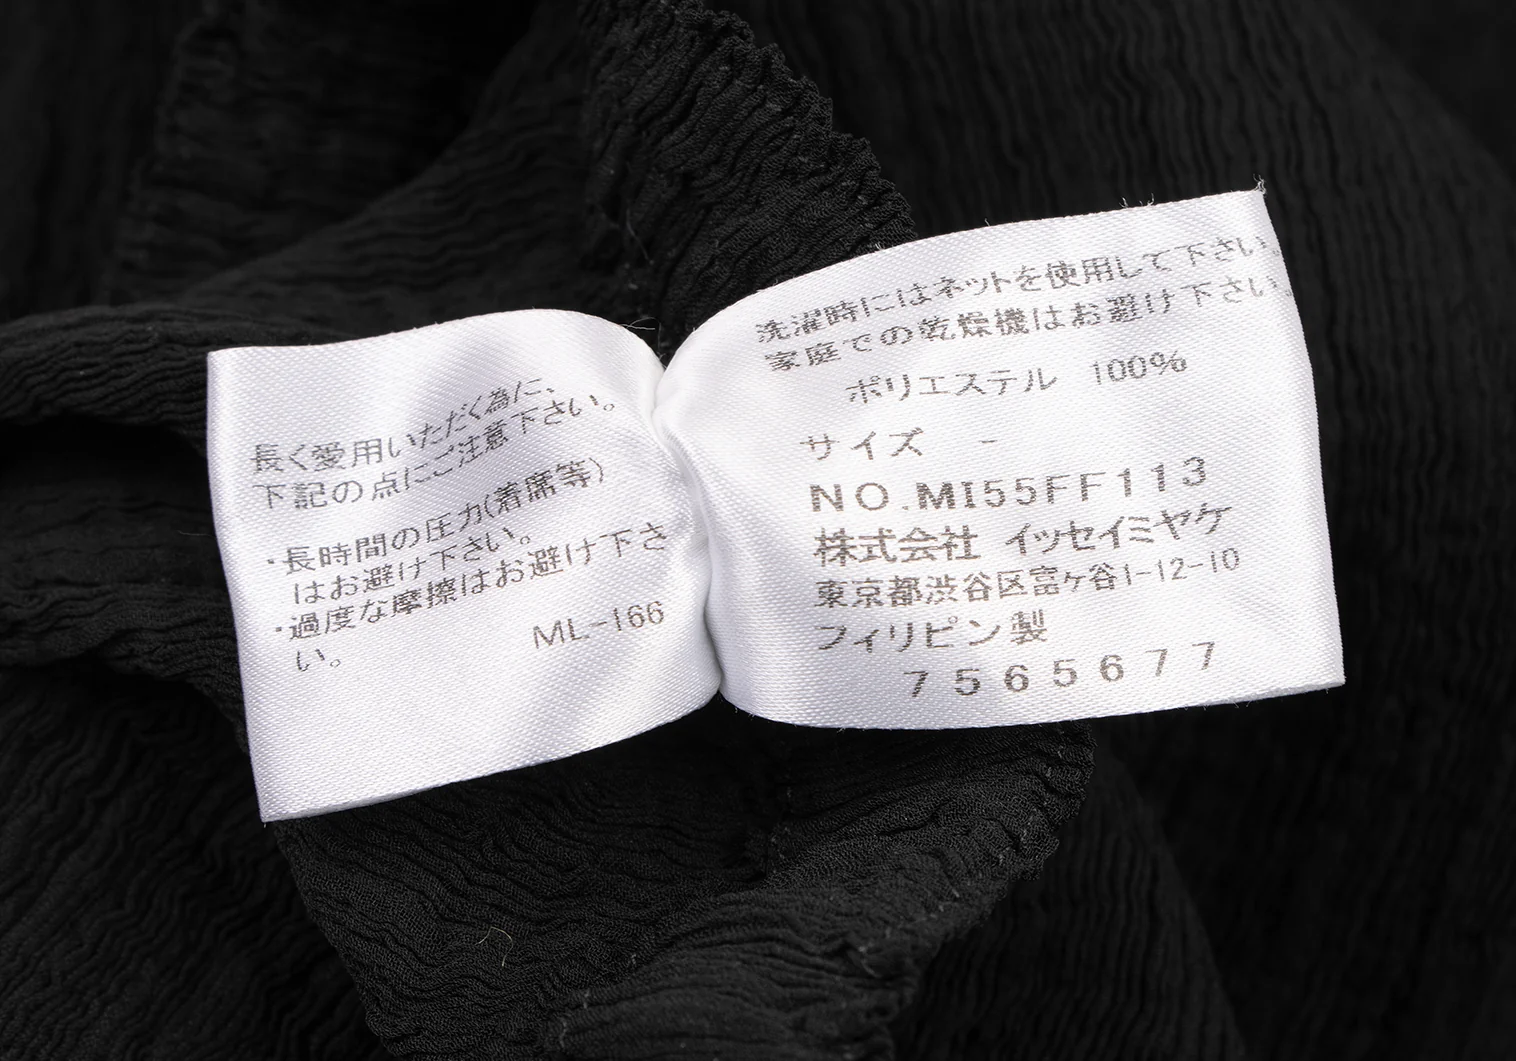 長く愛用いただく為に、
下記の点にご注意下さい。
・長時間の圧力(着席等)
はお避け下さい。
・過度な摩擦はお避け下さ
い。
ML-166
洗濯時にはネットを使用して下さい。
家庭での乾燥機はお避け下さい。
ポリエステル 100%
サイズ -
NO.MI55FF113
株式会社 イッセイミヤケ
東京都渋谷区富ヶ谷1-12-10
フィリピン製
7565677